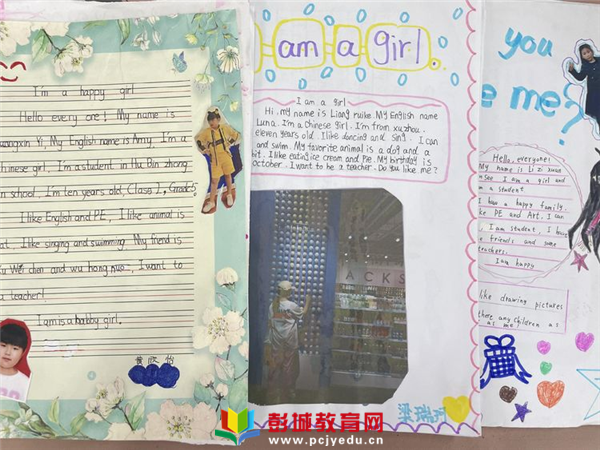 I'm a happy girl
Hello every one! My name is
Yi. My English name is Amy. I'm a
chinese girl. I'm a student in thu Bin zhong
n school. I'm ten years old. Class 1, Grade 5
I like English and PE, I like animal is
at. I like singing and swimming. My friend is
Wei chen and wu hong nuo, I want to
a teacher!
I am is a babby girl.
黄欣怡
am a girl.
I am a girl
Hi, my name is Liang ruike. My English name
Luna. I'm a Chinese girl. I'm from xuzhou.
eleven years old. I like dancing and sing. I can
and swim. My favorite animal is a dog and a
bit. I like eating ice cream and Pie. My birthday is
october. I want to be a teacher. Do you like me?
ACKS
梁瑞珂
you
me?
Hello, everyone!
My name is Li zi xuan
I am a girl and
m a student
I have a happy family.
ke PE and Art. I can
I am student, I have
e friends and some
teachers.
I am happy
like drawing pictures
there any children as
as me
彭城教育网
www.pcjyedu.cn